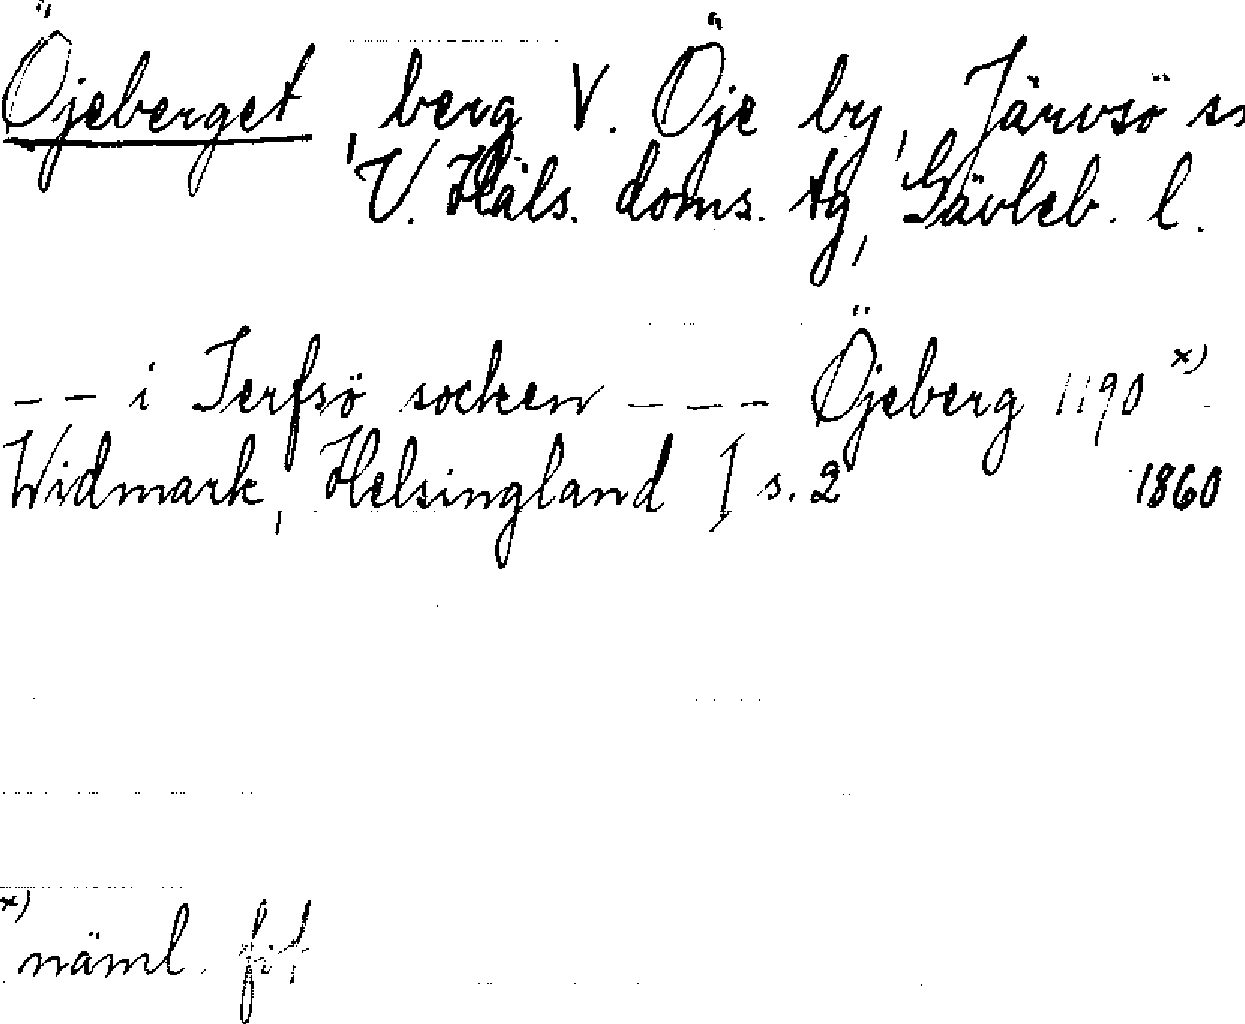 Öjeberget, berg V. Öje by, Järvsö sn
V. Häls. doms. tg, Gävleb. l.
-- i Jerfsö socken --- Öjeberg 1190 x)
Widmark, Helsingland I s. 2 1860
x)
näml. fot